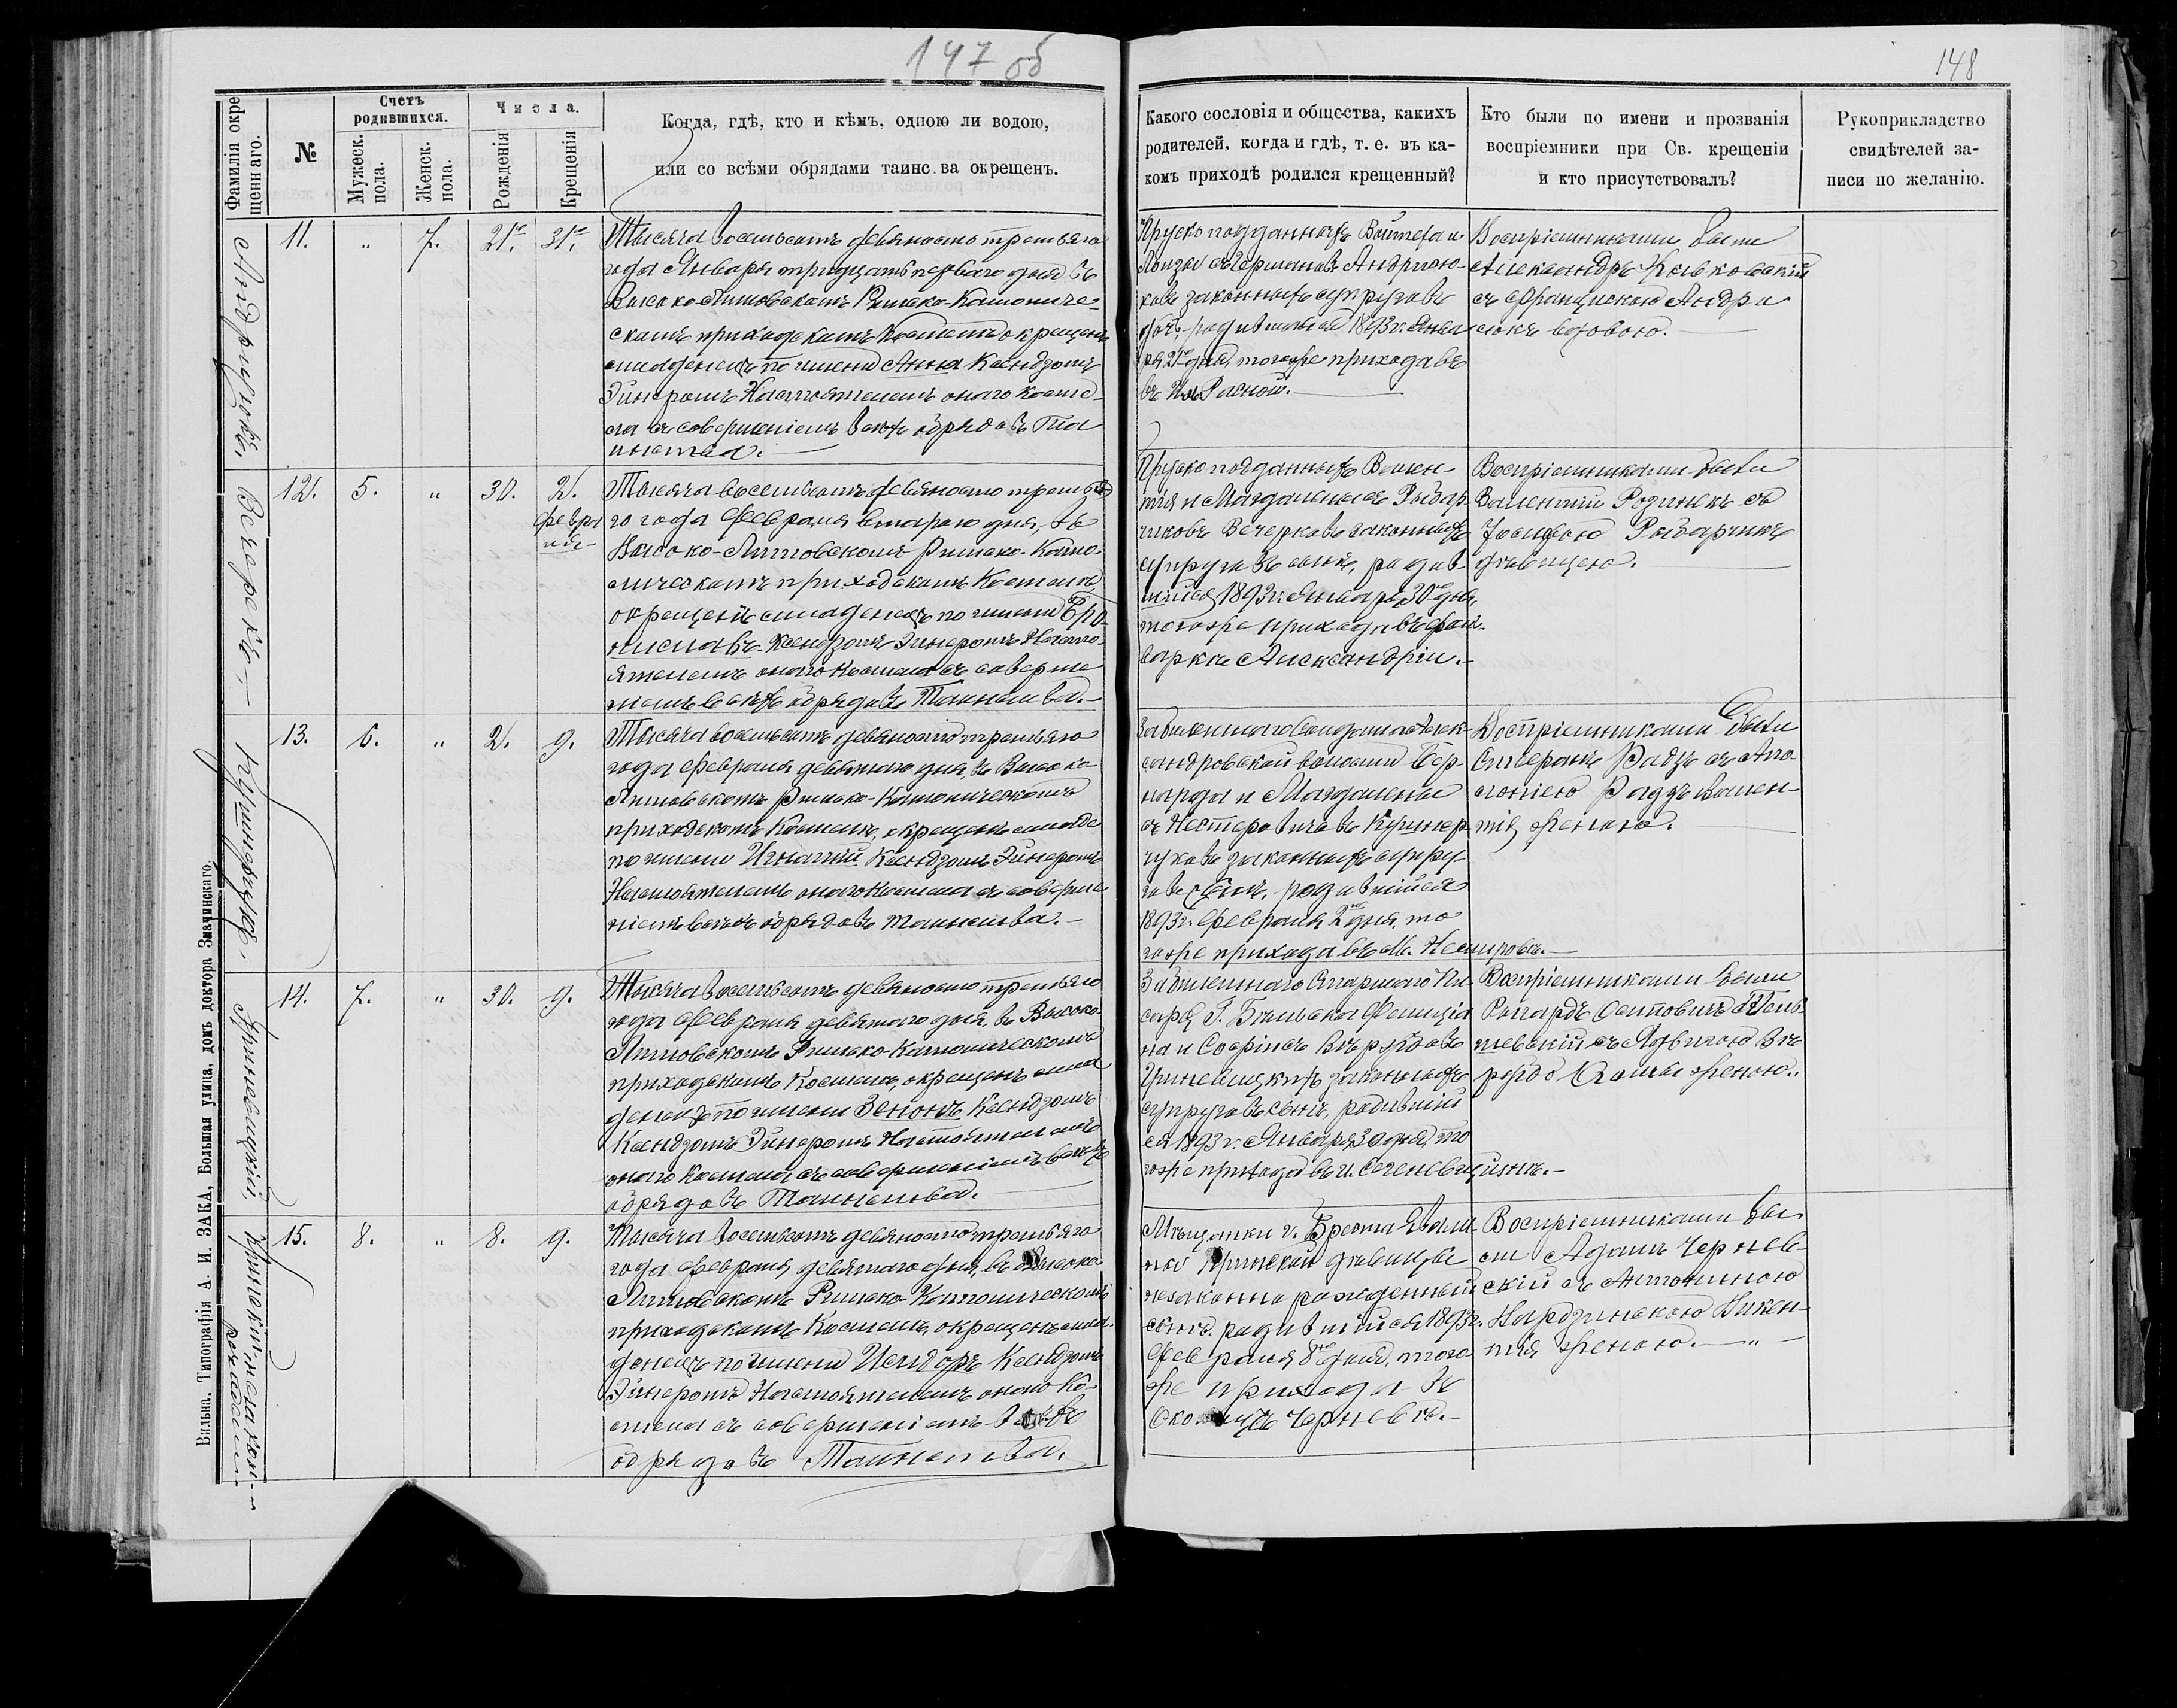 147 об
148
Фамилія окре
щеннаго.
№
Счетъ
родившихся.
Мужеск.
пола.
Женск.
пола.
Числа.
Рожденія
Крещенія
Когда, гдѣ, кто и кѣмъ, одною ли водою,
или со всѣми обрядами таинс ва окрещенъ.
Какого сословія и общества, какихъ
родителей, когда и гдѣ, т. е. въ ка-
комъ приходѣ родился крещенный?
Кто были по имени и прозванія
воспріемники при Св. крещеніи
и кто присутствовалъ?
Рукоприкладство
свидѣтелей за-
писи по желанію.
11.
"
7.
21го
31го
Тысяча восемьсотъ девяносто третьяго
года Января тридцать перваго дня въ
Высоко-Литовскомъ Римско-Католиче-
скомъ приходскомъ Костелѣ окрещенъ
младенецъ по имени Анна Ксендзомъ
Эйнеромъ Настоятелемъ онаго Косте-
ла съ совершеніемъ всѣхъ обрядовъ Таи
нства.
Прускоподданныхъ Войтеха и
Луизы съ Германовъ Андрию-
ковъ законныхъ супруговъ
дочь, родившаяся 1893 г. Янва
ря 21го дня, тогоже прихода въ
Воспріемниками были
Александръ
съ Францишкою Андри
сюкъ вдовою.
Вечерекъ.
12.
5.
"
30.
2.
Февра
ля
Тысяча восемьсотъ девяносто третья
го года Февраля втораго дня, въ
Высоко-Литовскомъ Римско-Като-
лическомъ приходскомъ Костелѣ
окрещенъ младенецъ по имени Бро-
ниславъ Ксендзомъ Эйнеромъ Насто-
ятелемъ онаго Костела съ соверше
ніемъ всѣхъ обрядовъ Таинства.
Прускоподданныхъ Вален-
тія и Магдалены съ Рыбар
чиковъ Вечерковъ законныхъ
супруговъ сынъ, родив-
шійся 1893 г. Января 30го дня,
тогоже прихода въ фоль-
варкѣ Александріи.
Воспріемниками были
Валентій Розинекъ съ
Юзефою Рыбарчикъ
дѣвицею.
Кушнерукъ.
13.
6.
"
2.
9.
Тысяча восемьсотъ девяносто третьяго
года Февраля девятаго дня, въ Высоко-
Литовскомъ Римско-Католическомъ
приходскомъ Костелѣ, окрещенъ младе
по имени Игнатій Ксендзомъ Эйнеромъ
Настоятелемъ онаго Костела съ соверше
ніемъ всѣхъ обрядовъ таинства.
Запаснаго Солдата Алек-
сандровской волости Бер-
нарда и Магдалены
съ Нестеровичовъ Кушнер-
чуковъ законныхъ супру-
говъ сынъ, родившійся
1893 г. Февраля 2го дня, то
гоже прихода въ м. Немировѣ.
Воспріемниками были
Радзъ съ Апо-
лоніею Радзъ Вален-
тія женою.
Гриневицкій
14.
7.
"
30.
9.
Тысяча восемьсотъ девяносто третьяго
года Февраля девятаго дня, въ Высоко-
Литовскомъ Римско-Католическомъ
приходскомъ Костелѣ, окрещенъ мла
денецъ по имени Зенонъ Ксендзомъ
Ксендзомъ Эйнеромъ Настоятелемъ
онаго Костела съ совершеніемъ всѣхъ
обрядовъ Таинства.
Г. Бѣльска Фелиціа
на и Софіи съ
Гриневицкихъ законныхъ
супруговъ сынъ, родившій
ся 1893 г. Января 30 дня, то
гоже прихода въ и. Сегеневщизнѣ.
Воспріемниками были
Рышардъ
съ Ядвигою
женою.
15.
8.
"
8.
9.
Тысяча восемьсотъ девяносто третьяго
года Февраля девятаго дня, въ Высоко
Литовскомъ Римско-Католическомъ
приходскомъ Костелѣ, окрещенъ мла-
денецъ по имени Исидоръ Ксендзомъ
Эйнеромъ Настоятелемъ онаго Ко-
стела съ совершеніемъ всѣхъ
обрядовъ Таинства.
Мѣщанки г. Бреста
дѣвицы
незаконно рожденный
сынъ, родившійся 1893 г.
Февраля 8го дня, того
же прихода въ
Черневѣ.
Воспріемниками бы
ли Адамъ Чернев-
скій съ Антониною
Викен-
тія женою.
Вильна. Типографія А. И. ЗАКА, Большая улица, домъ доктора Значинскаго.